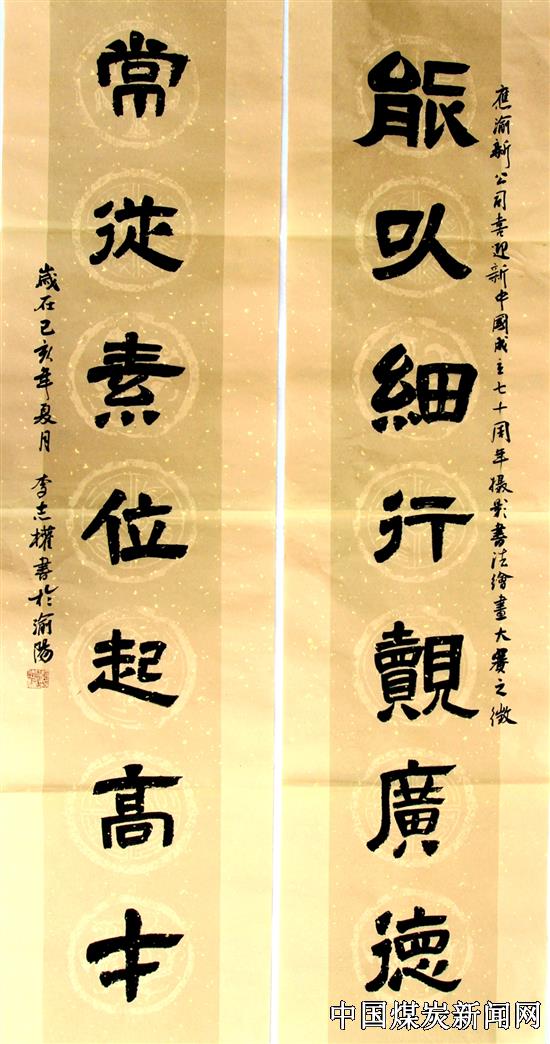 應渝新公司喜迎新中國成立七十周年摄影書法繪畫大賽之徵
能以細行觀廣德
常從素位起高才
歲在己亥年夏月 李志權書於渝陽
中国煤炭新闻网